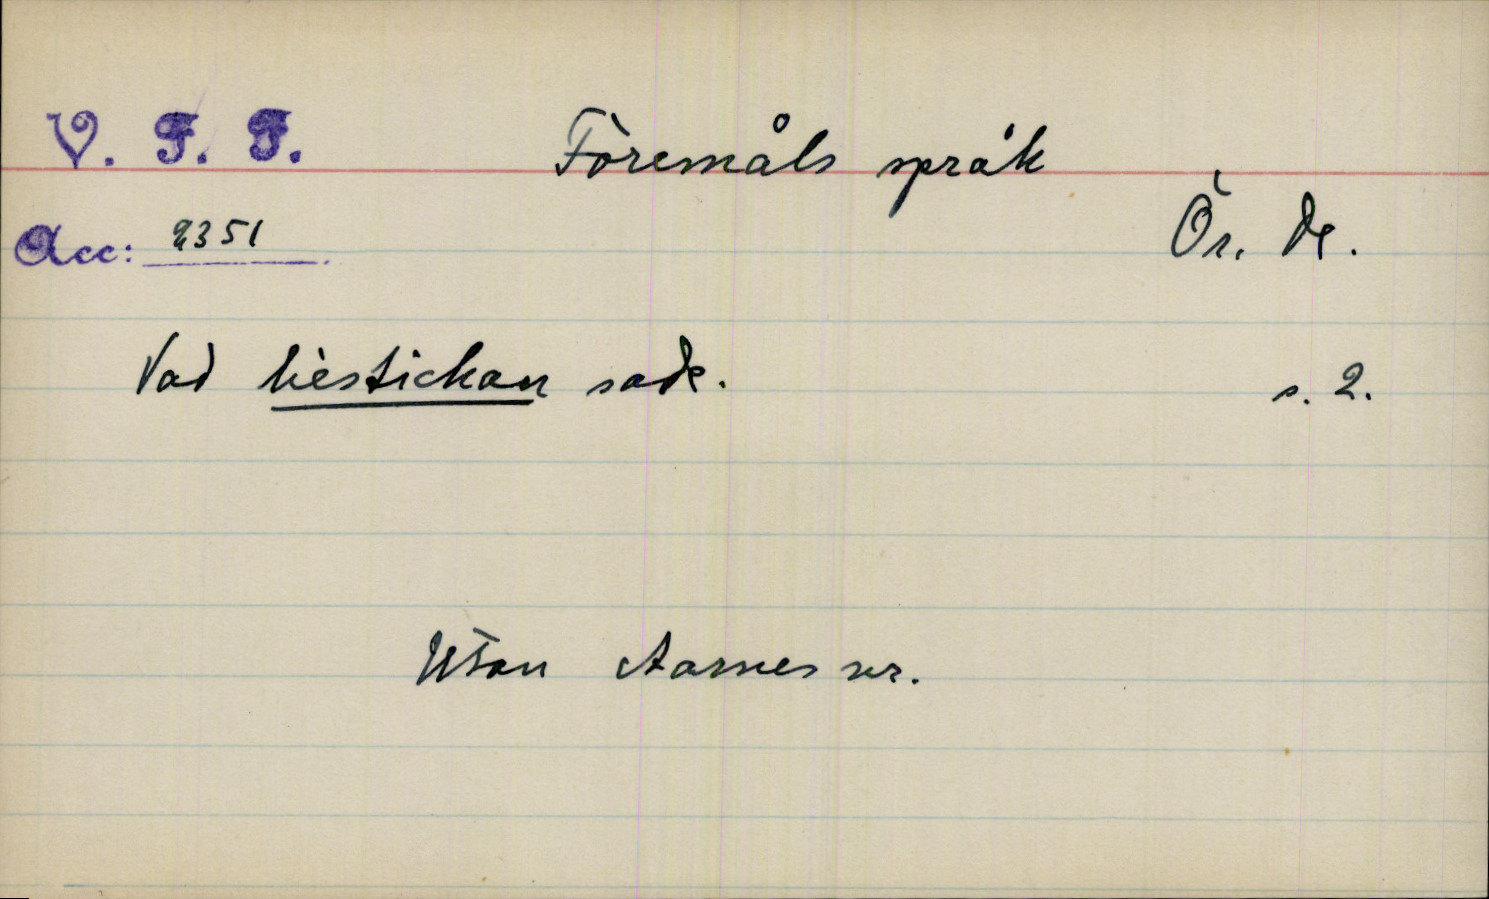 V. F. F. Föremåls språk
Ör. Dr.
Acc: 2351
Vad liestickan sade. s. 2.
Utan Aarnes nr.